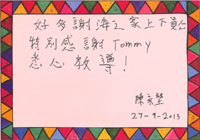 好多謝海之家上下員公
特別感謝 Tommy
悉心教導!
陳永堅
27-9-2013